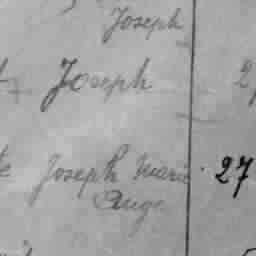 Joseph
Joseph 2
Joseph Marie 27
Ange